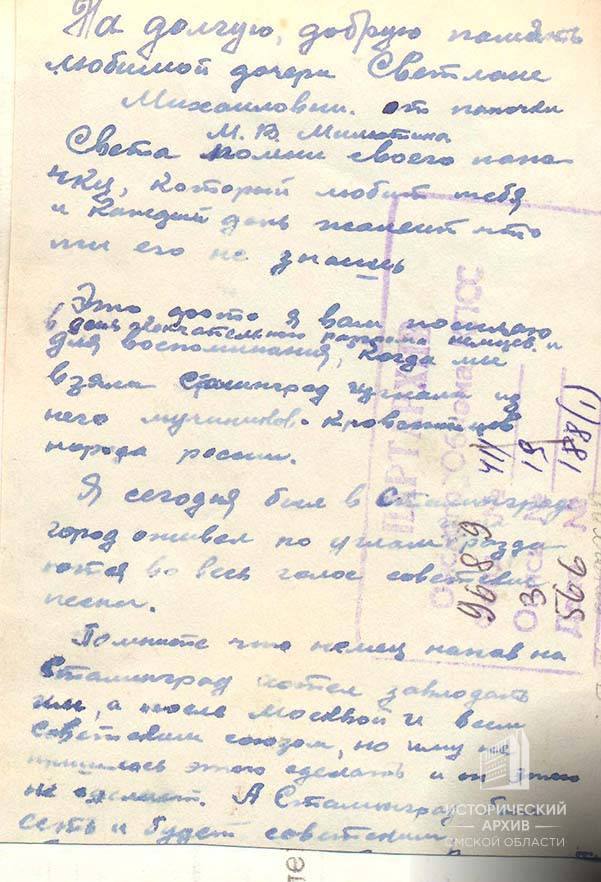 На долгую, добрую память
любимой дочери Светлане
Михаиловни. от папочки
М. В. Милютина
Света помни своего папа-
чку, который любит тебя
и каждий день жалеит что
ти его не знаишь
Это фото я вам посилаю
в дени окончательного разгрома немцев. и
для воспоминания, когда ми
взяли Сталинград изгнали из
него мучиников. кровопийцев
народа росии.
Я сегодня бил в Сталинград
город оживел по углам разда-
ются во весь голос советские
песни.
Помните что немец напав на
Сталинград хотел завлодать
им, а после Москвой и всем
советским союзом, но ему не
пришлось этого сделать и он этого
не сделает. А Сталинград бил
есть и будет советским
ПАРТАРХИВ
Омского Обкома КПСС
9689
411
19
3
188(1)
566
ИСТОРИЧЕСКИЙ
АРХИВ
ОМСКОЙ ОБЛАСТИ